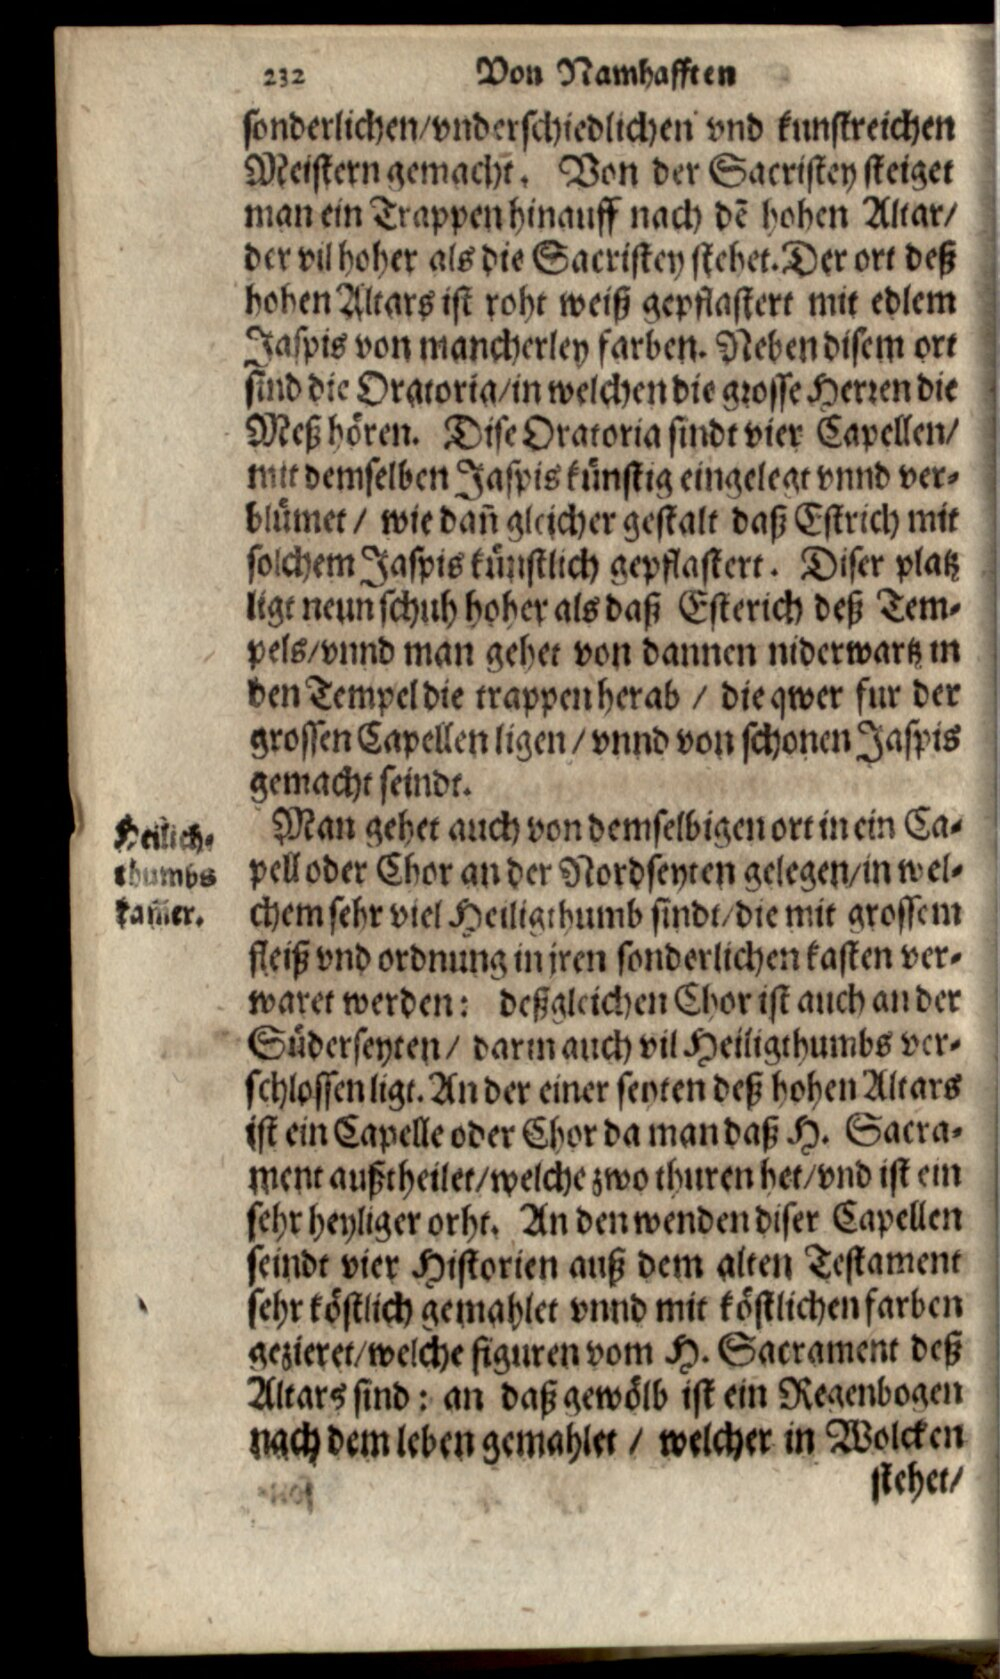 232 Von Namhafften
sonderlichen/vnderschiedlichen vnd kunstreichen
Meistern gemacht. Von der Sacristey steiget
man ein Trappen hinauff nach dē hohen Altar/
der vil hoher als die Sacristey stehet. Der ort deß
hohen Altars ist roht weiß gepflastert mit edlem
Jaspis von mancherley farben. Neben disem ort
sind die Oratoria/in welchen die grosse Herren die
Meß hören. Dise Oratoria sindt vier Capellen/
mit demselben Jaspis künstig eingelegt vnnd ver-
blümet / wie dañ gleicher gestalt daß Estrich mit
solchem Jaspis künstlich gepflastert. Diser platz
ligt neun schuh hoher als daß Esterich deß Tem-
pels/vnnd man gehet von dannen niderwartz in
den Tempel die trappen herab / die qwer fur der
grossen Capellen ligen / vnnd von schonen Jaspis
gemacht seindt.
Man gehet auch von demselbigen ort in ein Ca-
pell oder Chor an der Nordseyten gelegen/in wel-
chem sehr viel Heiligthumb sindt/die mit grossem
fleiß vnd ordnung in jren sonderlichen kasten ver-
waret werden: deßgleichen Chor ist auch an der
Süderseyten/ darin auch vil Heiligthumbs ver-
schlossen ligt. An der einer seyten deß hohen Altars
ist ein Capelle oder Chor da man daß H. Sacra-
ment außtheilet/welche zwo thuren het/vnd ist ein
sehr heyliger orht. An den wenden diser Capellen
seindt vier Historien auß dem alten Testament
sehr köstlich gemahlet vnnd mit köstlichen farben
gezieret/welche figuren vom H. Sacrament deß
Altars sind: an daß gewölb ist ein Regenbogen
nach dem leben gemahlet / welcher in Wolcken
stehet/
Heilich-
thumbs
kam̃er.